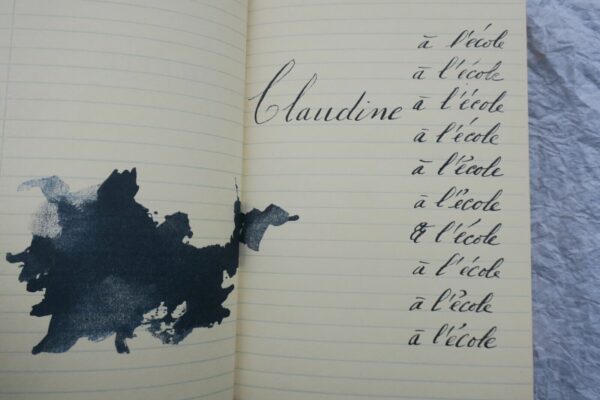 à l'école
à l'école
Claudine à l'école
à l'école
à l'école
à l'école
à l'école
à l'école
à l'école
à l'école